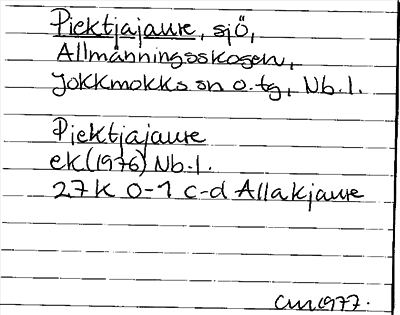 Piektjajaure, sjö,
Allmänningsskogen,
Jokkmokks sn o. tg, Nb. l.
Piektjajaure
ek (1976) Nb. l.
27K 0-1 c-d Allakjaure
CM 1977.